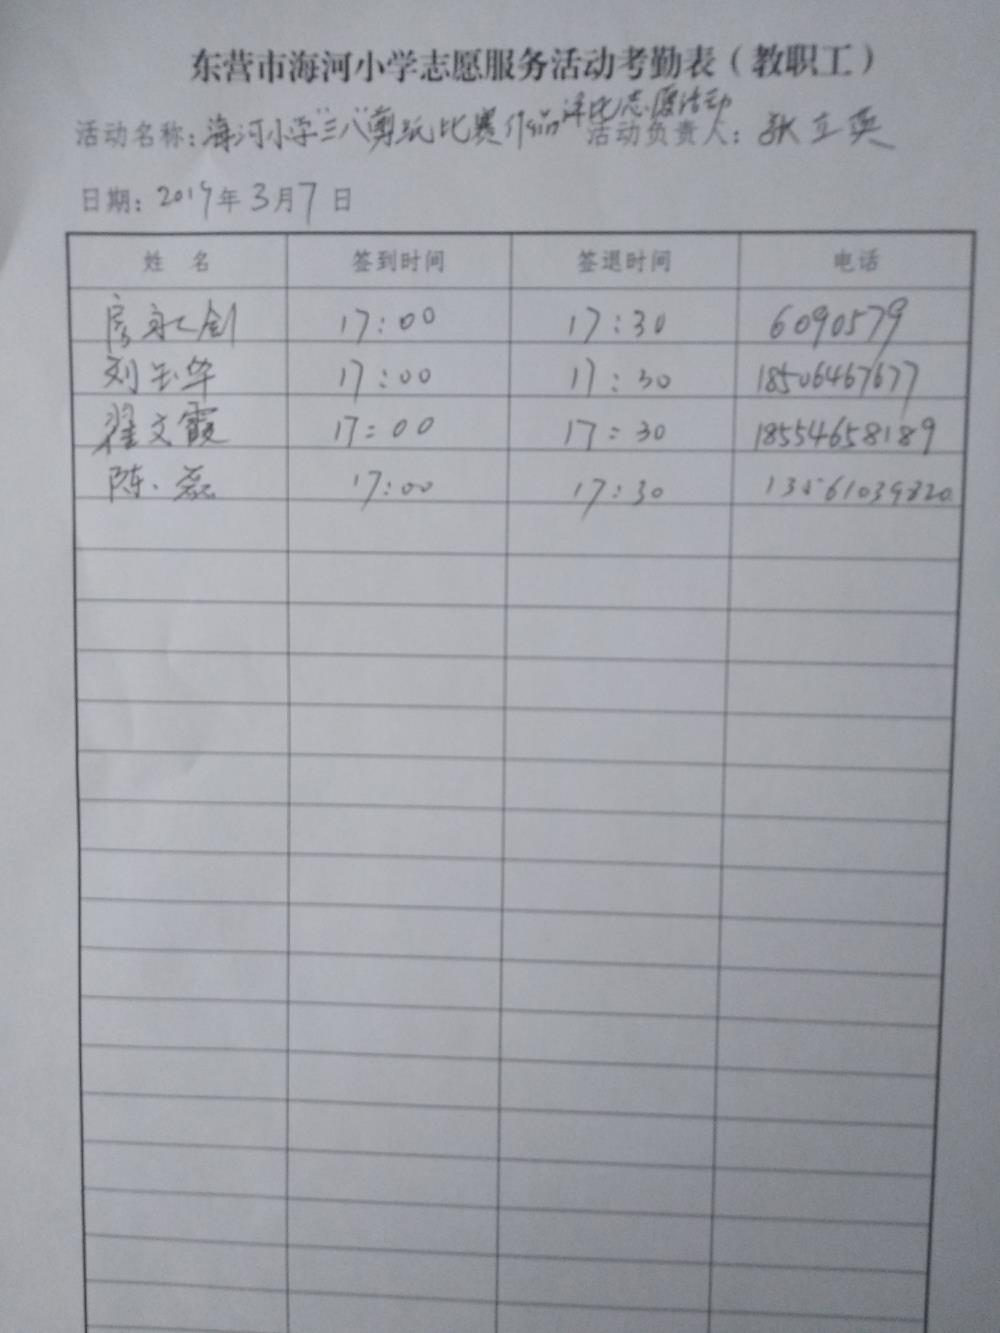 东营市海河小学志愿服务活动考勤表（教职工）
活动名称：海河小学“三八”剪纸比赛作品评比志愿活动 活动负责人：张立英
日期：2019年3月7日
姓 名 签到时间 签退时间 电话
房永剑 17:00 17:30 6090579
刘玉华 17:00 17:30 18506467677
翟文霞 17:00 17:30 18554658189
陈磊 17:00 17:30 13561039820